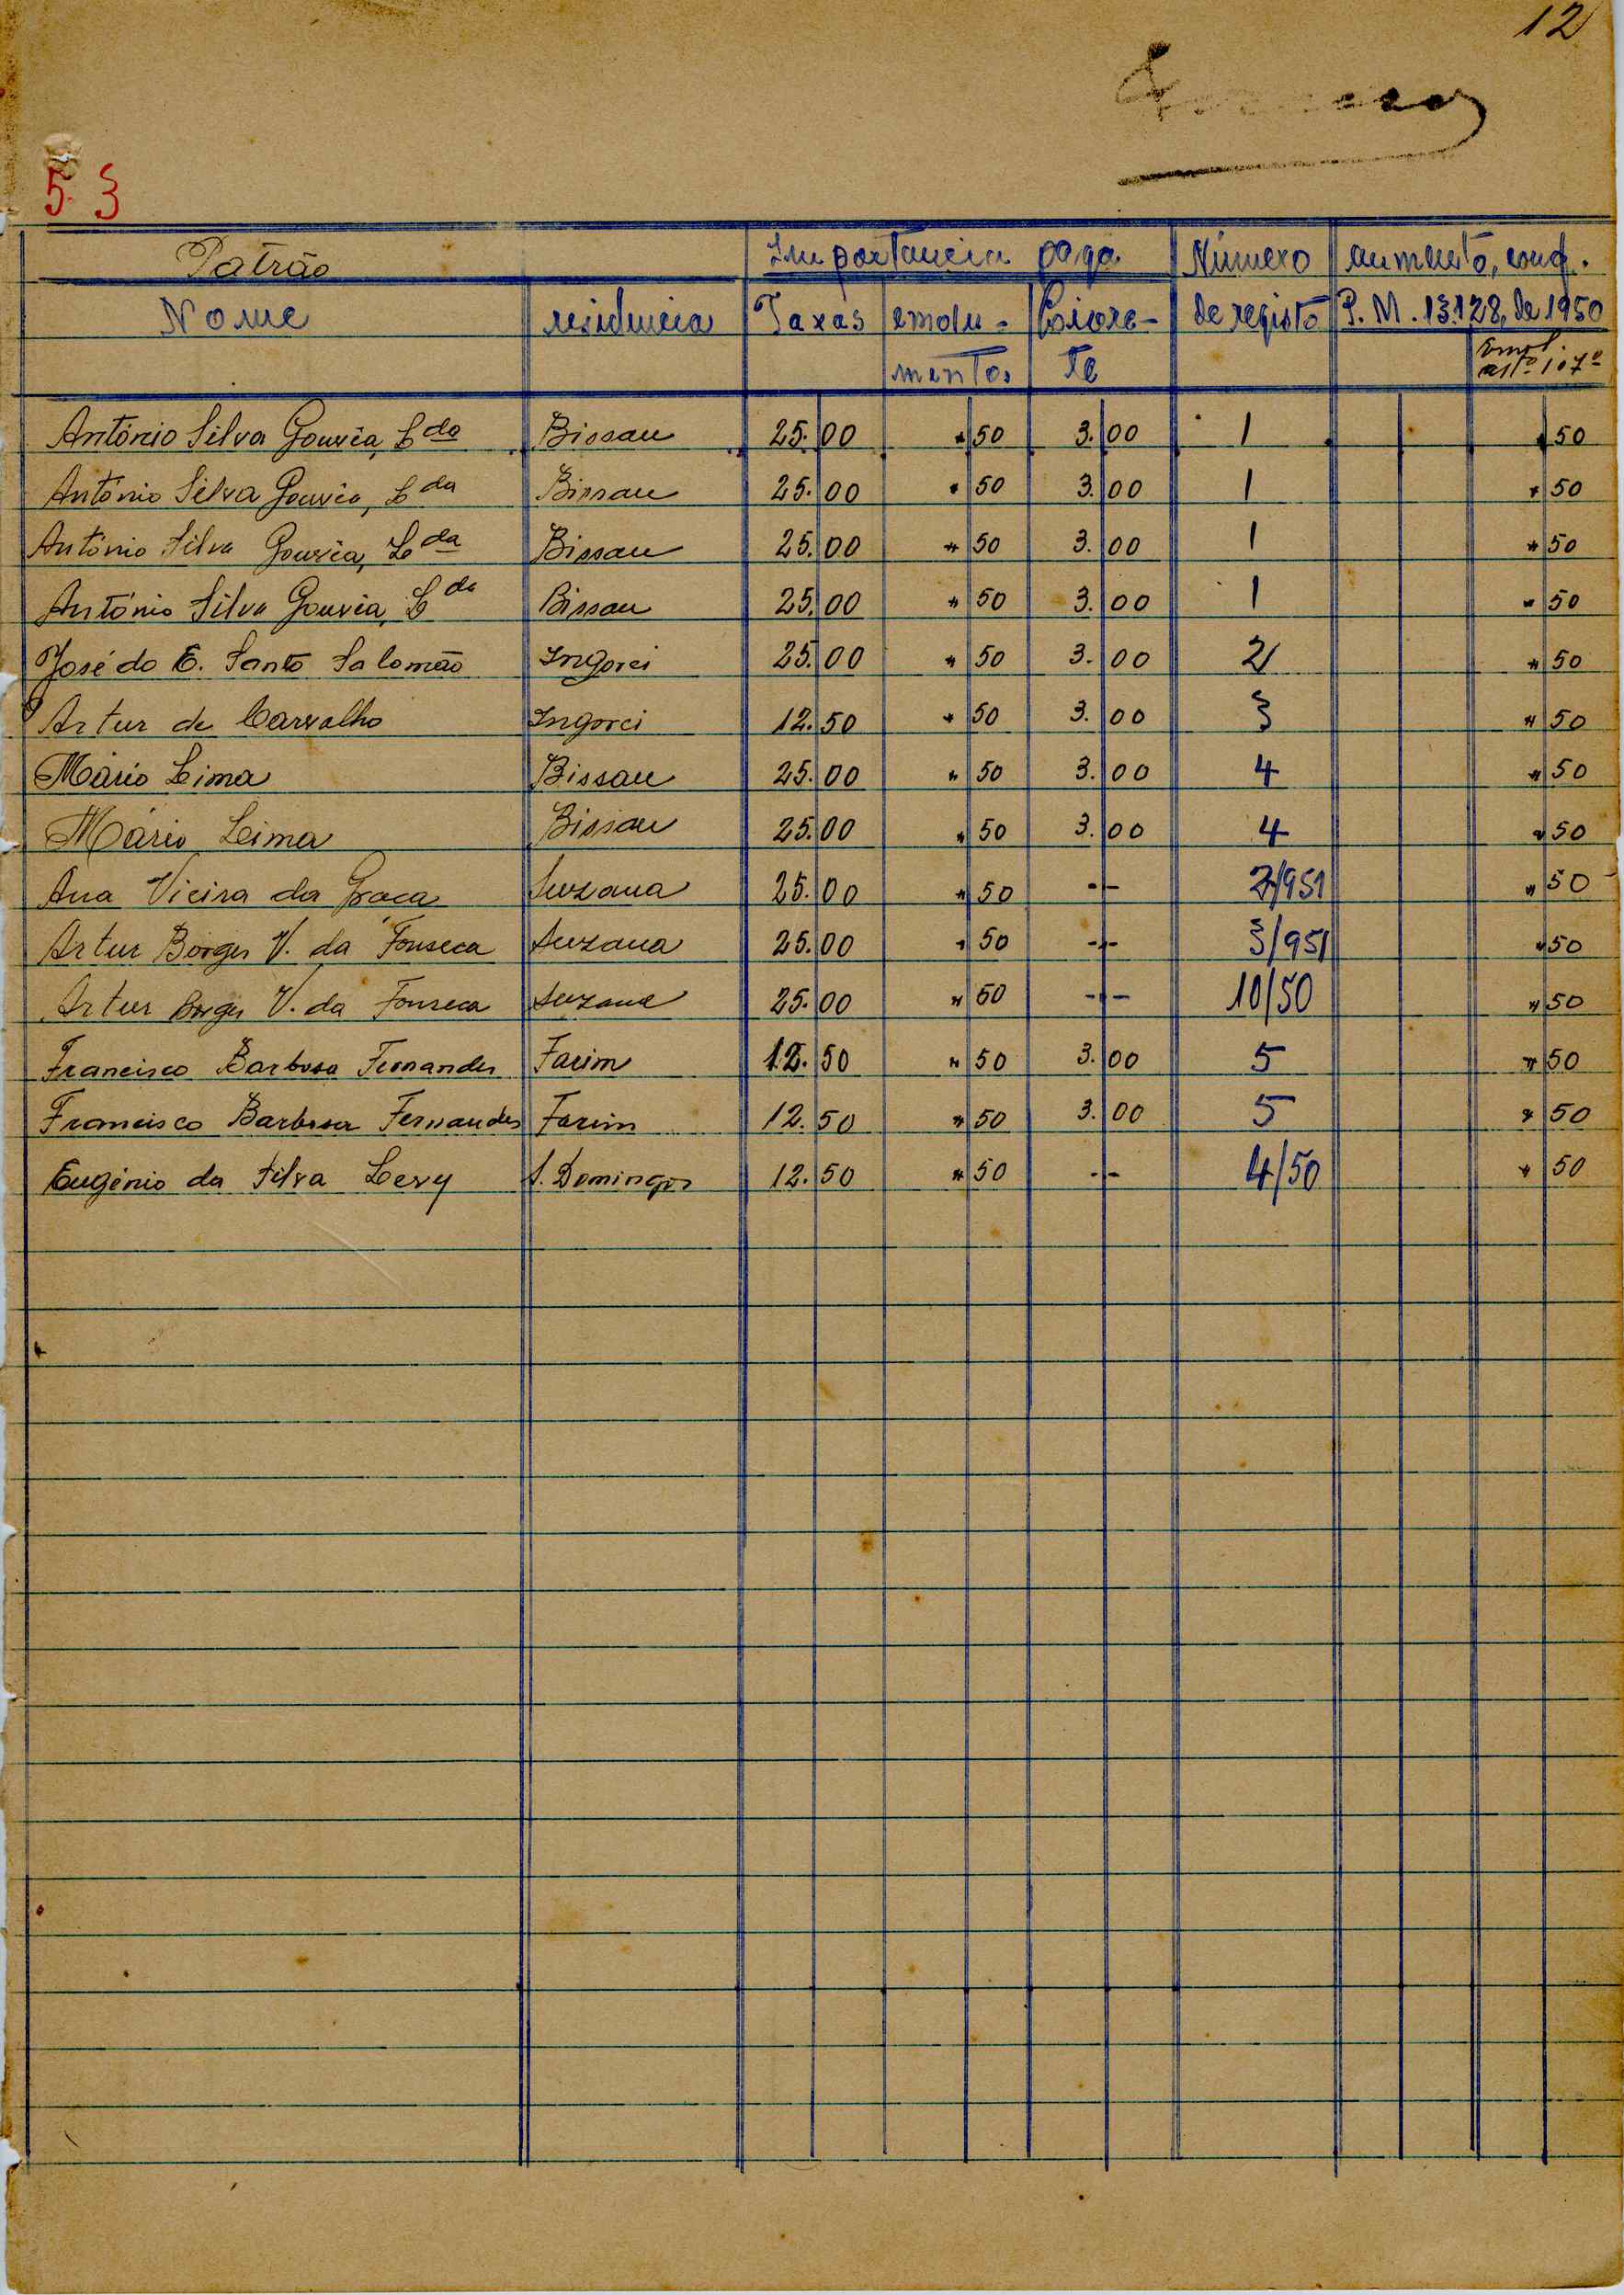 12
5.3
Patrão Importancia paga Número aumento, conf.
Nome residencia Taxas emolu- de registo P. M. 13.128, de 1950
mentos te Emol. artº 107º
António Silva Gouvêa, Lda Bissau 25.00 " 50 3.00 1 " 50
António Silva Gouvêa, Lda Bissau 25.00 " 50 3.00 1 " 50
António Silva Gouvêa, Lda Bissau 25.00 " 50 3.00 1 " 50
António Silva Gouvêa, Lda Bissau 25.00 " 50 3.00 1 " 50
José do E. Santo Salomão Ingorei 25.00 " 50 3.00 2 " 50
Artur de Carvalho Ingorei 12.50 " 50 3.00 3 " 50
Mário Lima Bissau 25.00 " 50 3.00 4 " 50
Mário Lima Bissau 25.00 " 50 3.00 4 " 50
Ana Vieira da Graca Suzana 25.00 " 50 -- 2/951 " 50
Artur Borges V. da Fonseca Suzana 25.00 " 50 -- 3/951 " 50
Artur Borges V. da Fonseca Suzana 25.00 " 50 -- 10/50 " 50
Francisco Barbosa Fernandes Farim 12.50 " 50 3.00 5 " 50
Francisco Barbosa Fernandes Farim 12.50 " 50 3.00 5 " 50
Eugénio da Silva Levy S. Domingos 12.50 " 50 -- 4/50 " 50